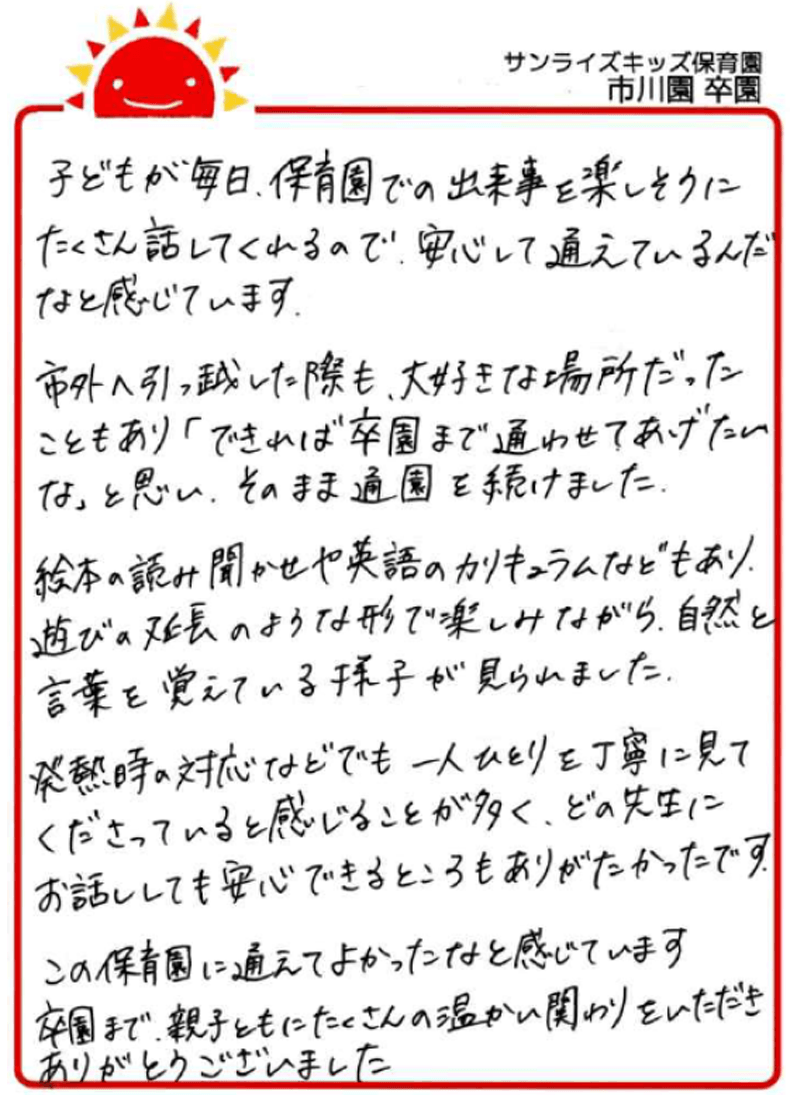 サンライズキッズ保育園
市川園 卒園
子どもが毎日、保育園での出来事を楽しそうに
たくさん話してくれるので、安心して通えているんだ
なと感じています。
市外へ引っ越した際も、大好きな場所だった
こともあり「できれば卒園まで通わせてあげたい
な」と思い、そのまま通園を続けました。
絵本の読み聞かせや英語のカリキュラムなどもあり、
遊びの延長のような形で楽しみながら、自然と
言葉を覚えている様子が見られました。
発熱時の対応などでも一人ひとりを丁寧に見て
くださっていると感じることが多く、どの先生に
お話ししても安心できるところもありがたかったです。
この保育園に通えてよかったなと感じています
卒園まで、親子ともにたくさんの温かい関わりをいただき
ありがとうございました